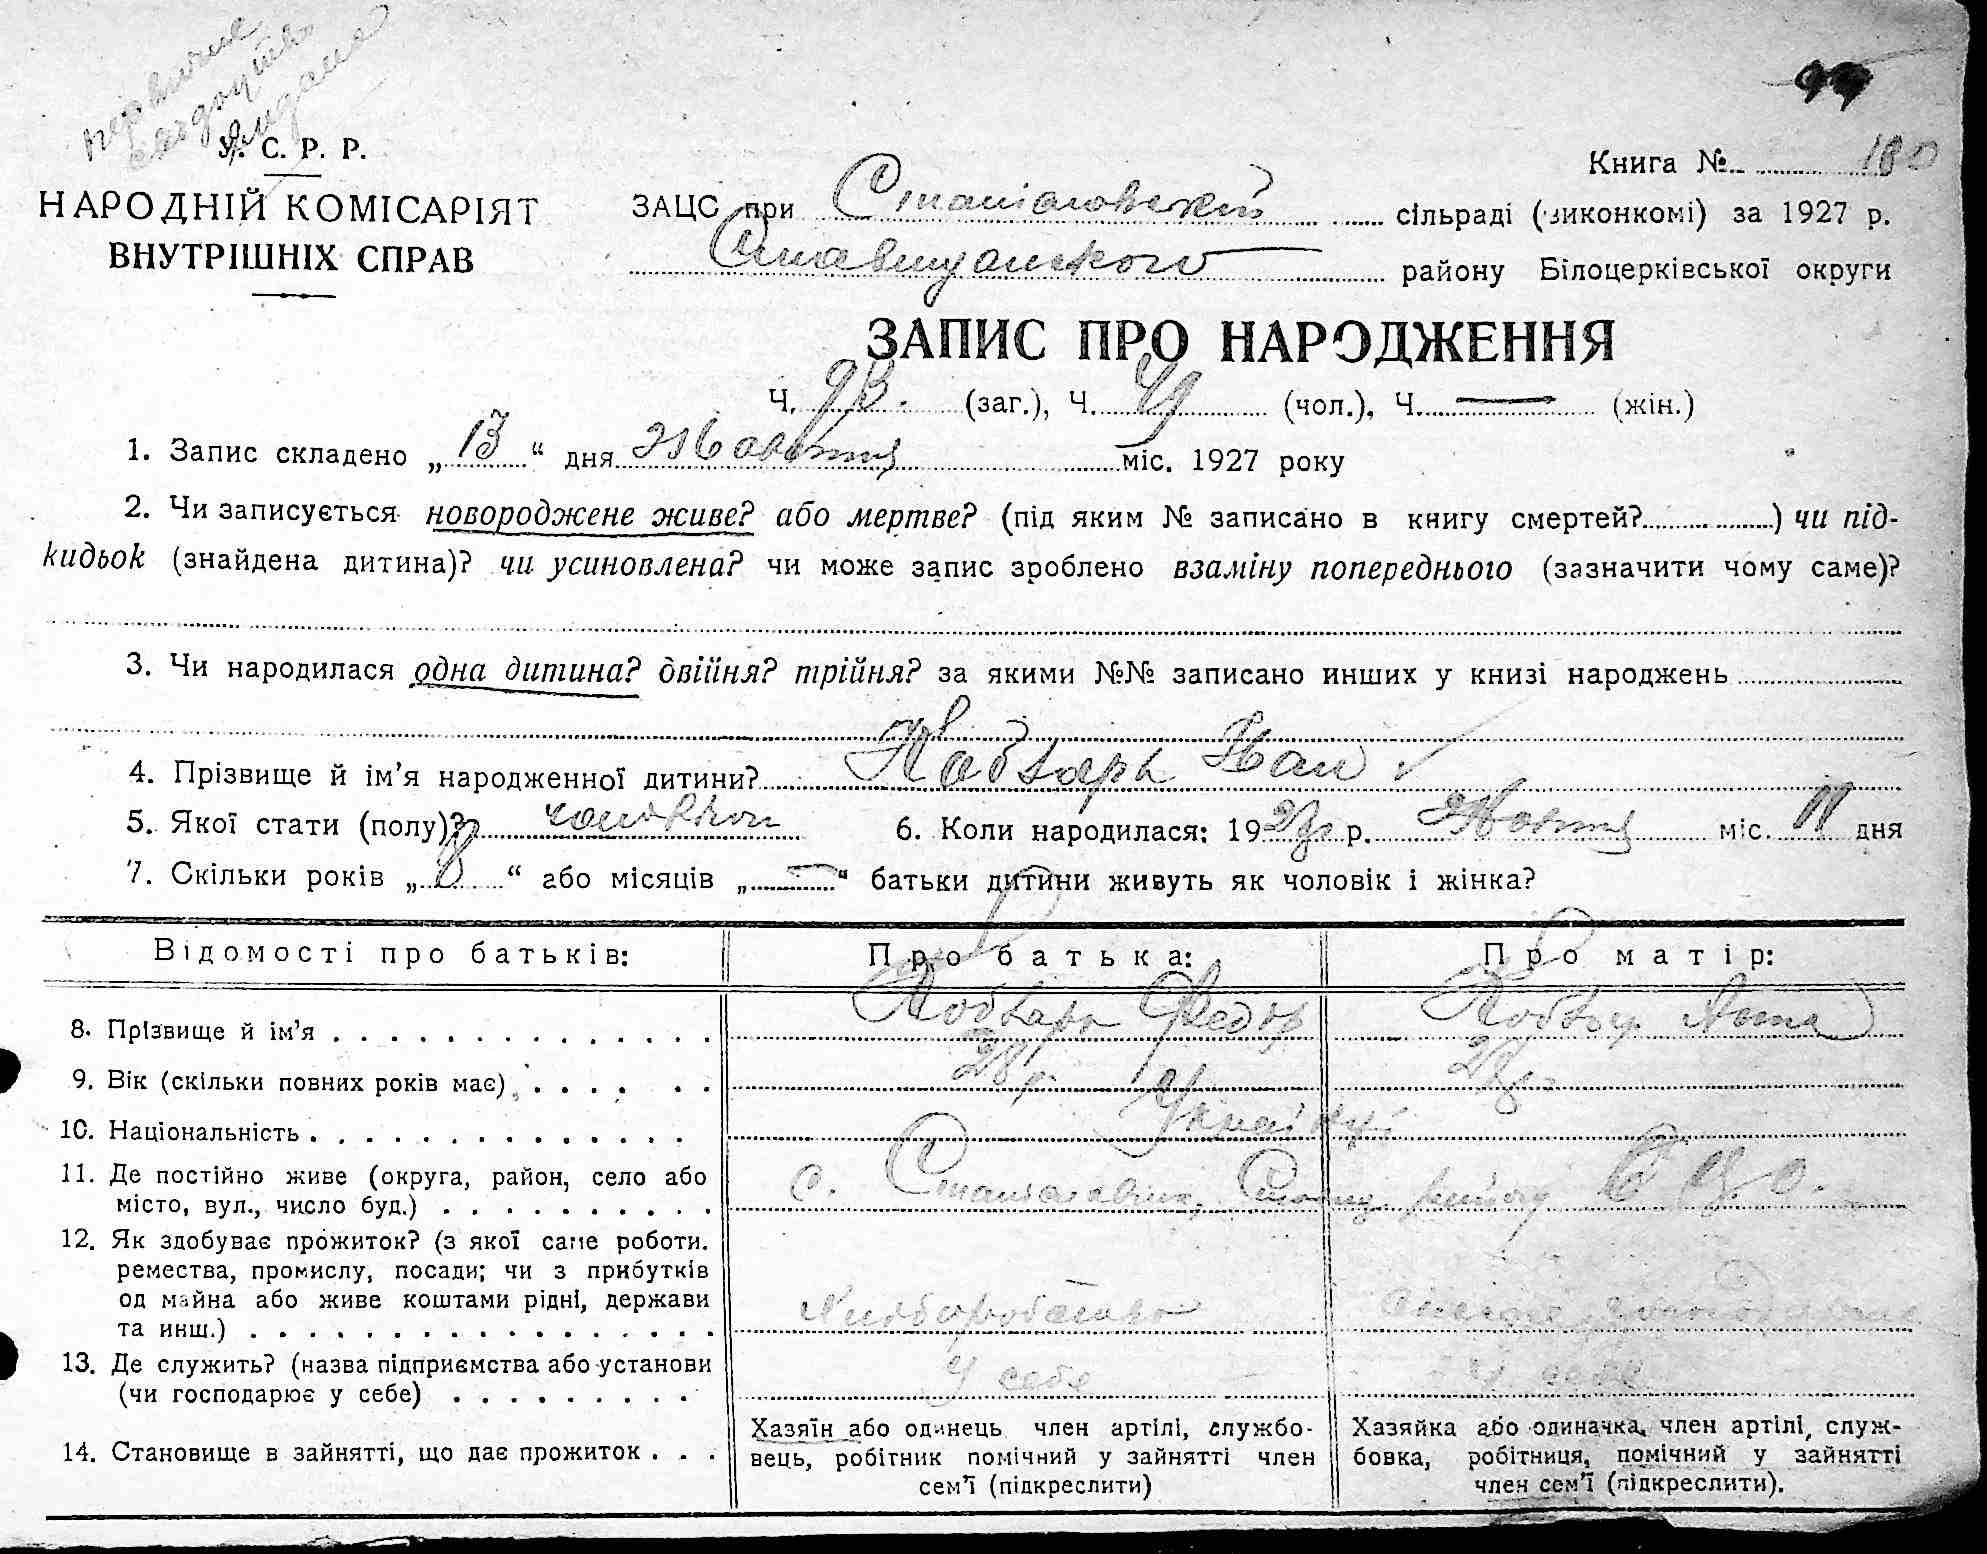 первичне
свідоцтво
видане
99
У. С. Р. Р.
НАРОДНІЙ КОМІСАРІЯТ
ВНУТРІШНІХ СПРАВ
Книга №. 180
ЗАЦС при Станіславській сільраді (виконкомі) за 1927 р.
Ставищанського району Білоцерківської округи
ЗАПИС ПРО НАРОДЖЕННЯ
Ч. 93. (заг.), Ч. 49 (чол.), Ч. — (жін.)
1. Запис складено „13“ дня Жовтня міс. 1927 року
2. Чи записується новороджене живе? або мертве? (під яким № записано в книгу смертей?) чи під-
кидьок (знайдена дитина)? чи усиновлена? чи може запис зроблено взаміну попереднього (зазначити чому саме)?
3. Чи народилася одна дитина? двійня? трійня? за якими №№ записано инших у книзі народжень
4. Прізвище й ім’я народженної дитини? Кобзарь Іван
5. Якої стати (полу)? чоловічої 6. Коли народилася: 1927 р. Жовтня міс. 11 дня
7. Скільки років „8“ або місяців „—“ батьки дитини живуть як чоловік і жінка?
Відомості про батьків: Про батька: Про матір:
8. Прізвище й ім’я Кобзарь Федір Кобзар Анна
9. Вік (скільки повних років має) 28 р. 28 р.
10. Національність Українці
11. Де постійно живе (округа, район, село або
місто, вул., число буд.) с. Станіславчик, Ставищ. району Б Ц. О.
12. Як здобуває прожиток? (з якої саме роботи.
ремества, промислу, посади; чи з прибутків
од майна або живе коштами рідні, держави
та инш.) Хліборобством
13. Де служить? (назва підприємства або установи
(чи господарює у себе) У себе У себе
14. Становище в зайнятті, що дає прожиток
Хазяїн або одинець член артілі, службо-
вець, робітник помічний у зайнятті член
сем’ї (підкреслити)
Хазяйка або одиначка, член артілі, служ-
бовка, робітниця, помічний у зайнятті
член сем’ї (підкреслити).